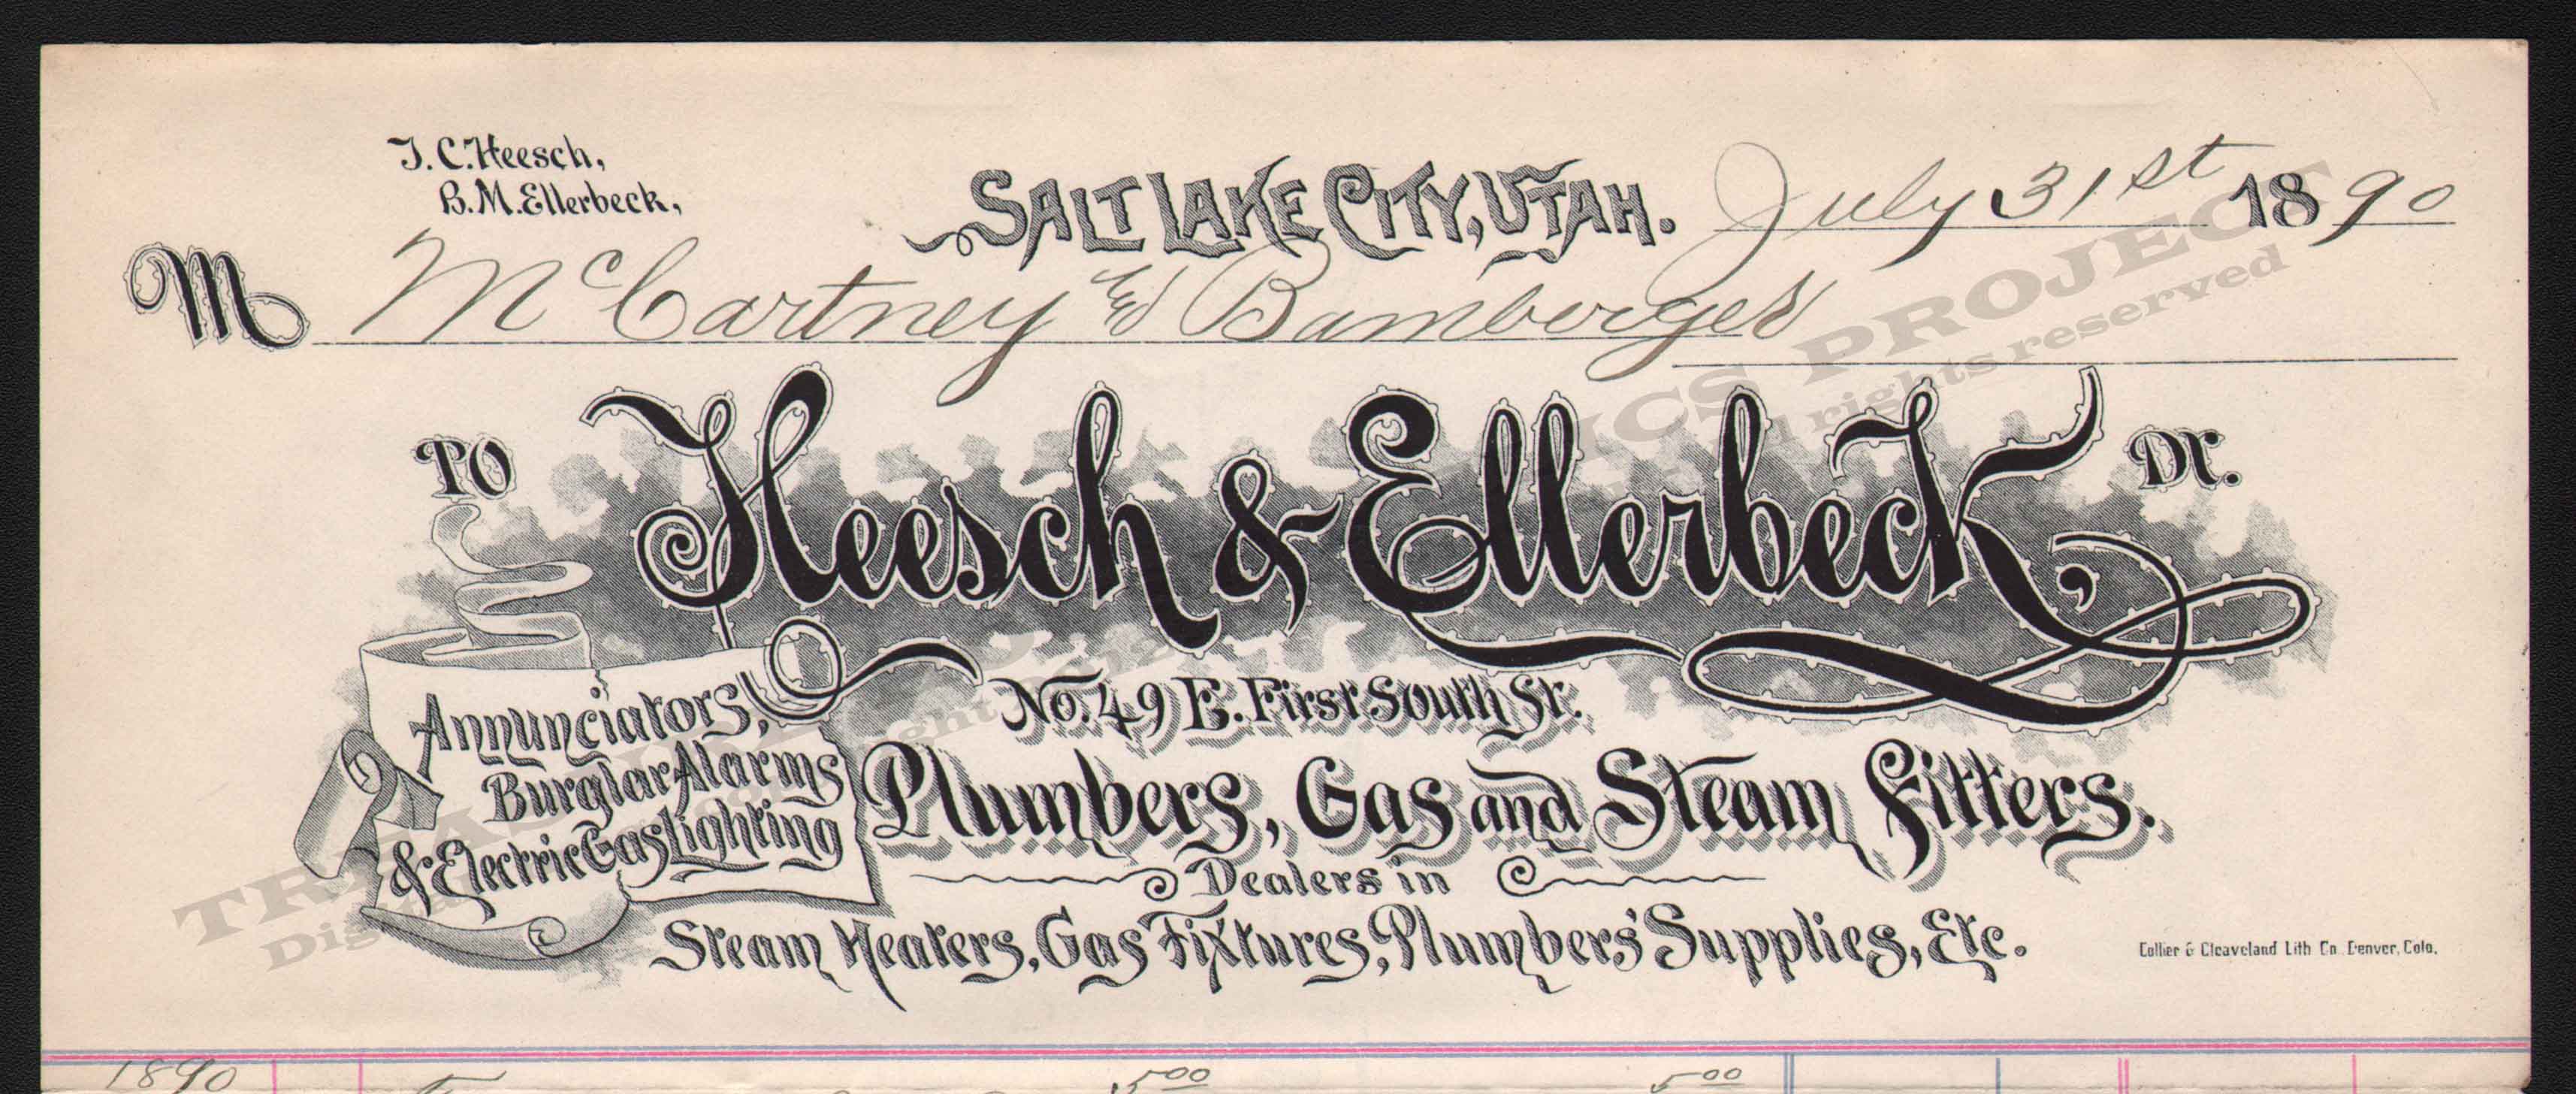 J. C. Heesch,
B. M. Ellerbeck,
Salt Lake City, Utah. July 31st 1890
M McCartney & Bamberger
To Heesch & Ellerbeck, Dr.
No. 49 E. First South St.
Annunciators,
Burglar Alarms
& Electric Gas Lighting
Plumbers, Gas and Steam Fitters.
Dealers in
Steam Heaters, Gas Fixtures, Plumbers' Supplies, Etc.
Collier & Cleaveland Lith Co. Denver, Colo.
1890 5 00 5 00